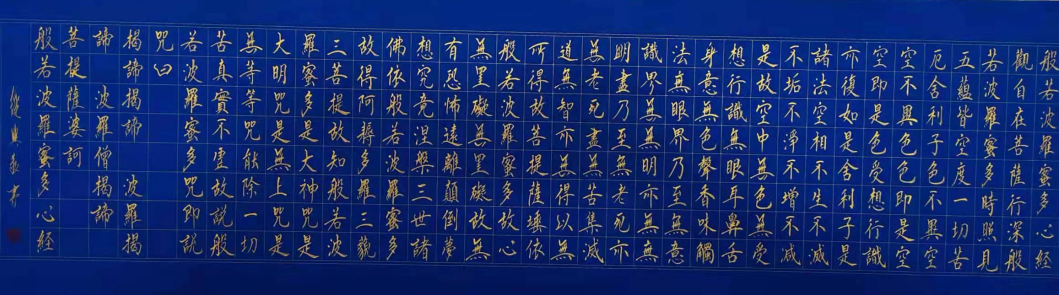 般若波羅蜜多心経
觀自在菩薩行深般
若波羅蜜多時照見
五蘊皆空度一切苦
厄舍利子色不異空
空不異色色即是空
空即是色受想行識
亦復如是舍利子是
諸法空相不生不滅
不垢不淨不增不減
是故空中無色無受
想行識無眼耳鼻舌
身意無色聲香味觸
法無眼界乃至無意
識界無無明亦無無
明盡乃至無老死亦
無老死盡無苦集滅
道無智亦無得以無
所得故菩提薩埵依
般若波羅蜜多故心
無罣礙無罣礙故無
有恐怖遠離顛倒夢
想究竟涅槃三世諸
佛依般若波羅蜜多
故得阿耨多羅三藐
三菩提故知般若波
羅蜜多是大神咒是
大明咒是無上咒是
無等等咒能除一切
苦真實不虛故說般
若波羅蜜多咒即說
咒曰
揭諦揭諦 波羅揭
諦 波羅僧揭諦
菩提薩婆訶
般若波羅蜜多心経